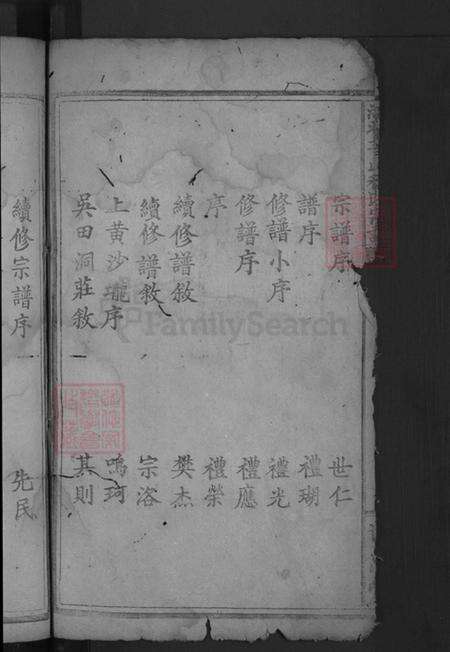 宗譜序 世仁
譜序 禮瑚
修譜小序 禮光
修譜序 禮應
序 禮榮
續修譜敘 樊杰
續修譜敘 宗洛
上黃沙壠序 鳴珂
吳田洞莊敘 其則
續修宗譜序 先民
FamilySearch